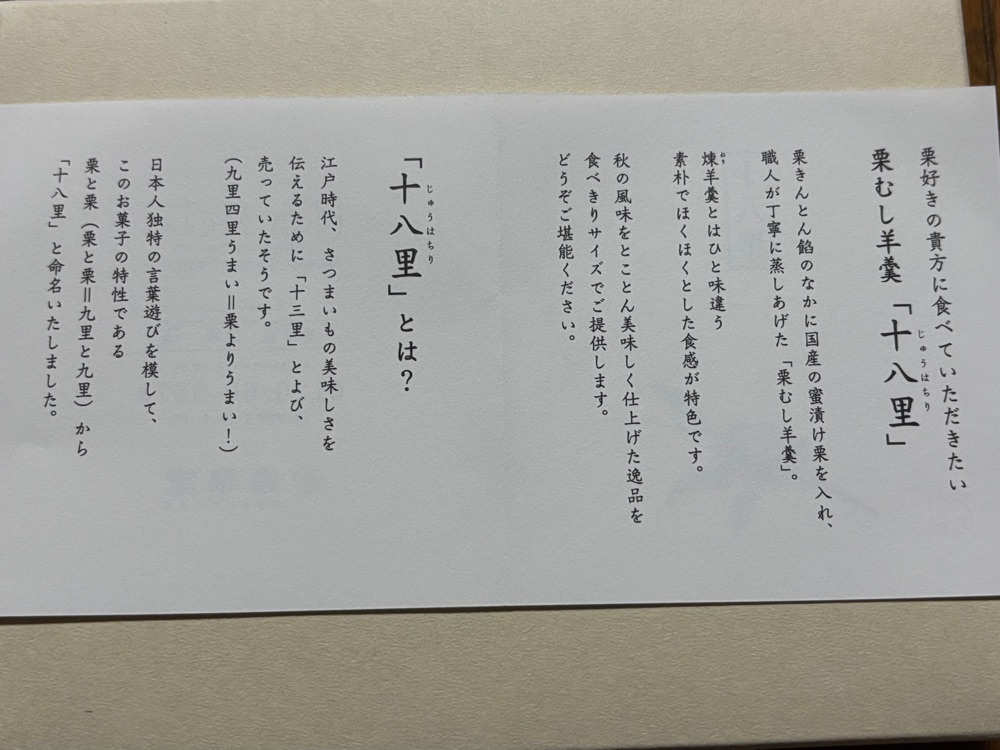 栗好きの貴方に食べていただきたい
栗むし羊羹「十八里」
じゅうはちり
栗きんとん餡のなかに国産の蜜漬け栗を入れ、
職人が丁寧に蒸しあげた「栗むし羊羹」。
煉羊羹とはひと味違う
素朴でほくほくとした食感が特色です。
秋の風味をとことん美味しく仕上げた逸品を
食べきりサイズでご提供します。
どうぞご堪能ください。
「十八里」とは？
じゅうはちり
江戸時代、さつまいもの美味しさを
伝えるために「十三里」とよび、
売っていたそうです。
（九里四里うまい＝栗よりうまい！）
日本人独特の言葉遊びを模して、
このお菓子の特性である
栗と栗（栗と栗＝九里と九里）から
「十八里」と命名いたしました。